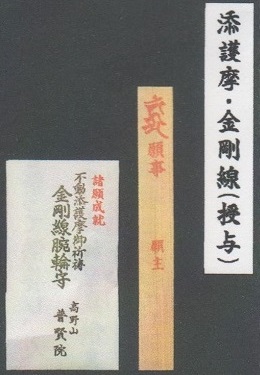 添護摩・金剛線(授与)
願事
願主
諸願成就
不動添護摩御祈祷
金剛線腕輪守
高野山
普賢院